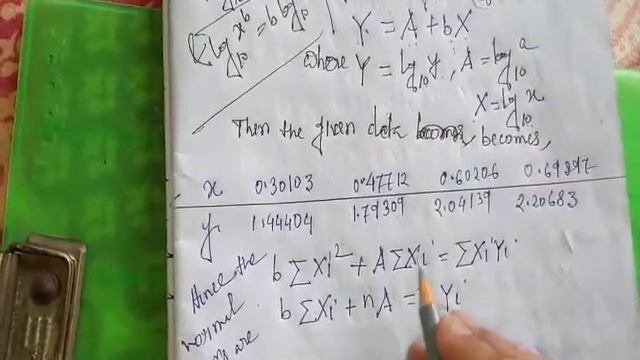 log x^b = b log
10 10
Y = A + bX
where Y = log y, A = log a
10 10
X = log x
10
Then the given data becomes,
x 0.30103 0.47712 0.60206 0.69897
y 1.44404 1.79309 2.04139 2.20683
Hence the b ΣXi² + A ΣXi = ΣXiYi
normal b ΣXi + nA = Yi
are